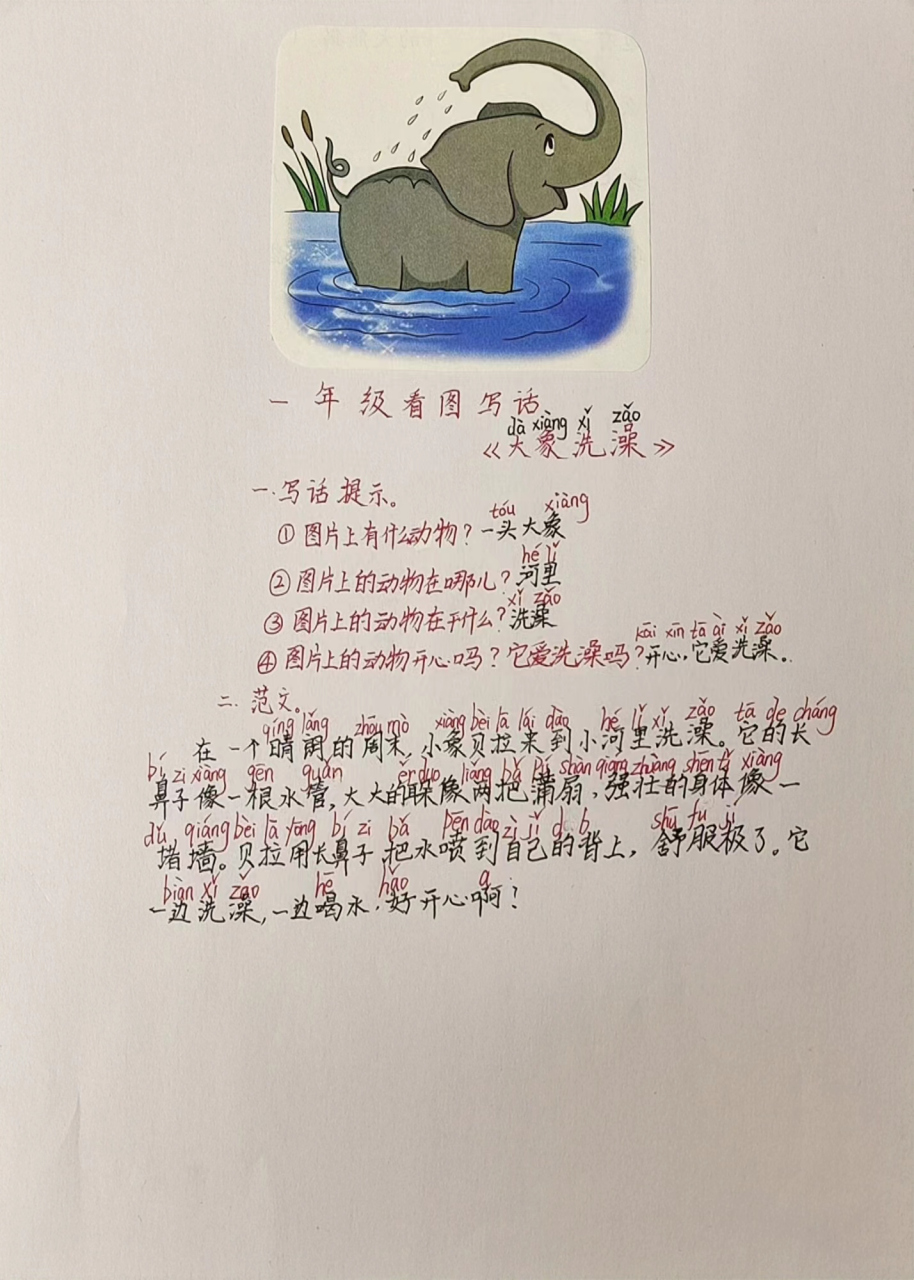 一年级看图写话
dà xiàng xǐ zǎo
《大象洗澡》
一.写话提示。
tóu xiàng
①图片上有什么动物?一头大象
hé lǐ
②图片上的动物在哪儿?河里
xǐ zǎo
③图片上的动物在干什么?洗澡
kāi xīn tā ài xǐ zǎo
④图片上的动物开心吗?它爱洗澡吗?开心,它爱洗澡。
二.范文。
qíng lǎng zhōu mò xiàng bèi lā lái dào hé lǐ xǐ zǎo tā de cháng
在一个晴朗的周末,小象贝拉来到小河里洗澡。它的长
bí zi xiàng gēn guǎn ěr duo liǎng bǎ pú shàn qiáng zhuàng shēn tǐ xiàng
鼻子像一根水管,大大的耳朵像两把蒲扇,强壮的身体像一
dǔ qiáng bèi lā yòng bí zi bǎ pēn dao zì jǐ d b shū fu jí
堵墙。贝拉用长鼻子把水喷到自己的背上,舒服极了。它
biān xǐ zǎo hē hǎo a
一边洗澡,一边喝水,好开心啊!